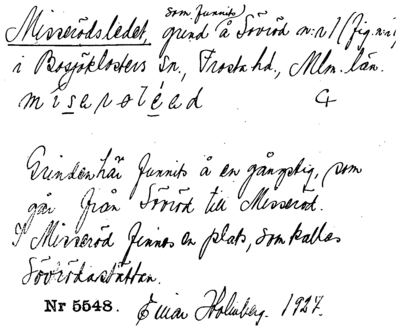 som funnits
Misserödsledet, grind å Sövröd n:r 1 (fig. n:r 1)
i Bosjöklosters sn., Frosta hd., Mlm. län.
misarøléad
Grinden här funnits å en gångstig, som
går från Sövröd till Misseröd.
I Misseröd finnes en plats, som kallas
Sövrödastättan.
Nr 5548. Einar Holmberg. 1927.